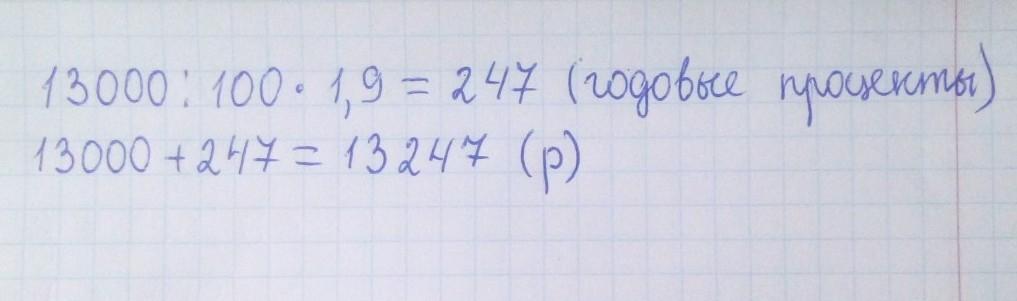 13000 : 100 · 1,9 = 247 (годовые проценты)
13000 + 247 = 13247 (р)